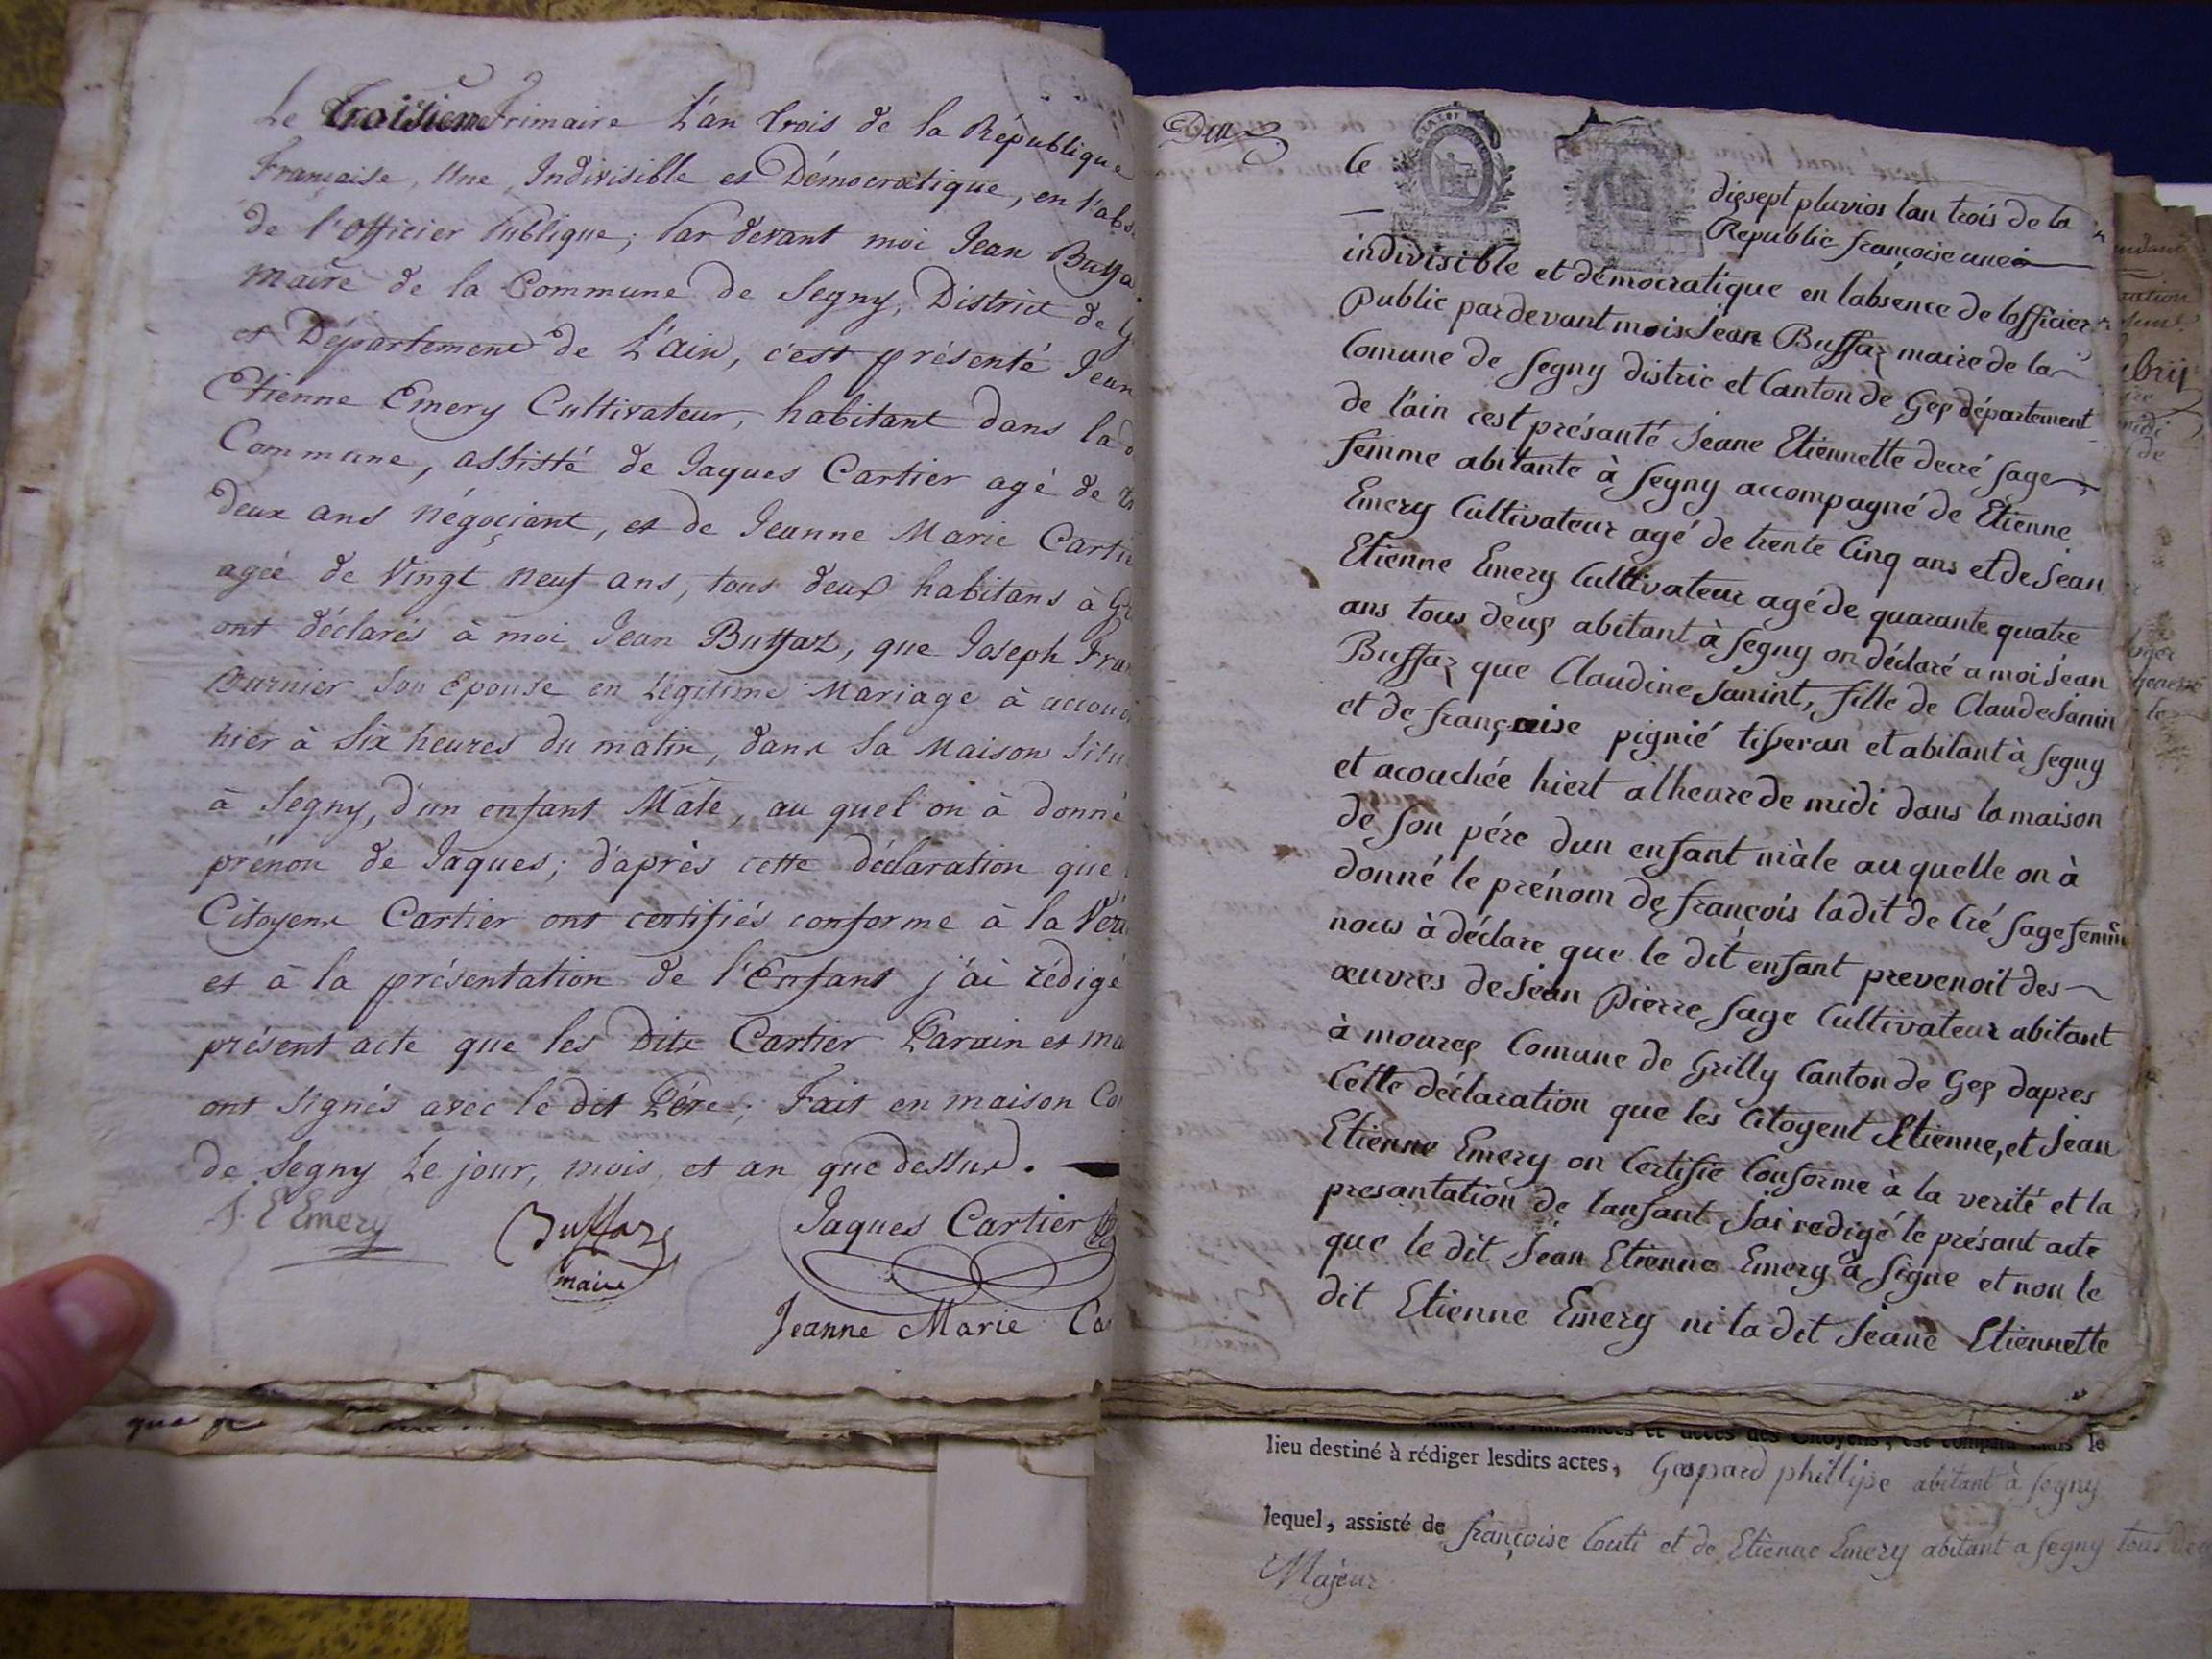 Le Troisieme Frimaire L'an trois de la République
Française, Une, Indivisible et Démocratique, en l'abs
de l'Officier Publique; Par devant moi Jean Buffa
Maire de la Commune de Segny, District de G
et Département de L'ain, c'est présenté Jean
Etienne Emery Cultivateur, habitant dans la d
Commune, assisté de Jaques Cartier agé de
deux ans négoçiant, et de Jeanne Marie Cartie
agée de Vingt neuf ans, tous deux habitans à G
ont déclarés à moi Jean Buffaz, que Joseph Fran
Burnier Son Epouse en Légitime Mariage à accou
hier à Six heures du matin, dans Sa Maison Situ
à Segny, d'un enfant Male, au quel on à donné
prénon de Jaques; d'après cette déclaration que
Citoyens Cartier ont certifiés conforme à la Véri
et à la présentation de l'Enfant j'ai rédigé
présent acte que les Dits Cartier Parain et ma
ont signés avec le dit Pére; Fait en maison Co
de Segny Le jour, mois, et an que dessus.
J. E Emery Buffaz Jaques Cartier
maire
Jeanne Marie Ca
le
diesept pluvios lan trois de la
Republic francoise une
indivisible et démocratique en labsence de lofficier
public pardevant mois Jean Buffaz maire de la
Comune de Segny distric et Canton de Gex département
de l'ain cest présanté Jeane Etiennette decré sage
femme abitante à Segny accompagné de Etienne
Emery Cultivateur agé de trente Cinq ans et de Jean
Etienne Emery Cultivateur agé de quarante quatre
ans tous deux abitant à Segny on déclaré a moi Jean
Buffaz que Claudine Janint, fille de Claude Janin
et de françoise pignié tisseran et abitant à Segny
et acouchée hiert alheure de midi dans la maison
de son pére dun enfant màle au quelle on à
donné le prénom de françois ladit de Cré sage femme
nous à déclare que le dit enfant prevenoit des
œuvres de Jean Pierre Sage Cultivateur abitant
à mourex Comune de Grilly Canton de Gex dapres
Cette déclaration que les Citoyent Etienne, et Jean
Etienne Emery on Certifie Conforme à la verité et la
presantation de lanfant Jai redigé le présant acte
que le dit Jean Etienne Emery à signe et non le
dit Etienne Emery ni la dit Jeane Etiennette
lieu destiné à rédiger lesdits actes, Gaspard phillipe abitant à Segny
lequel, assisté de françoise Couti et de Etienne Emery abitant a Segny tous deu
Majeur